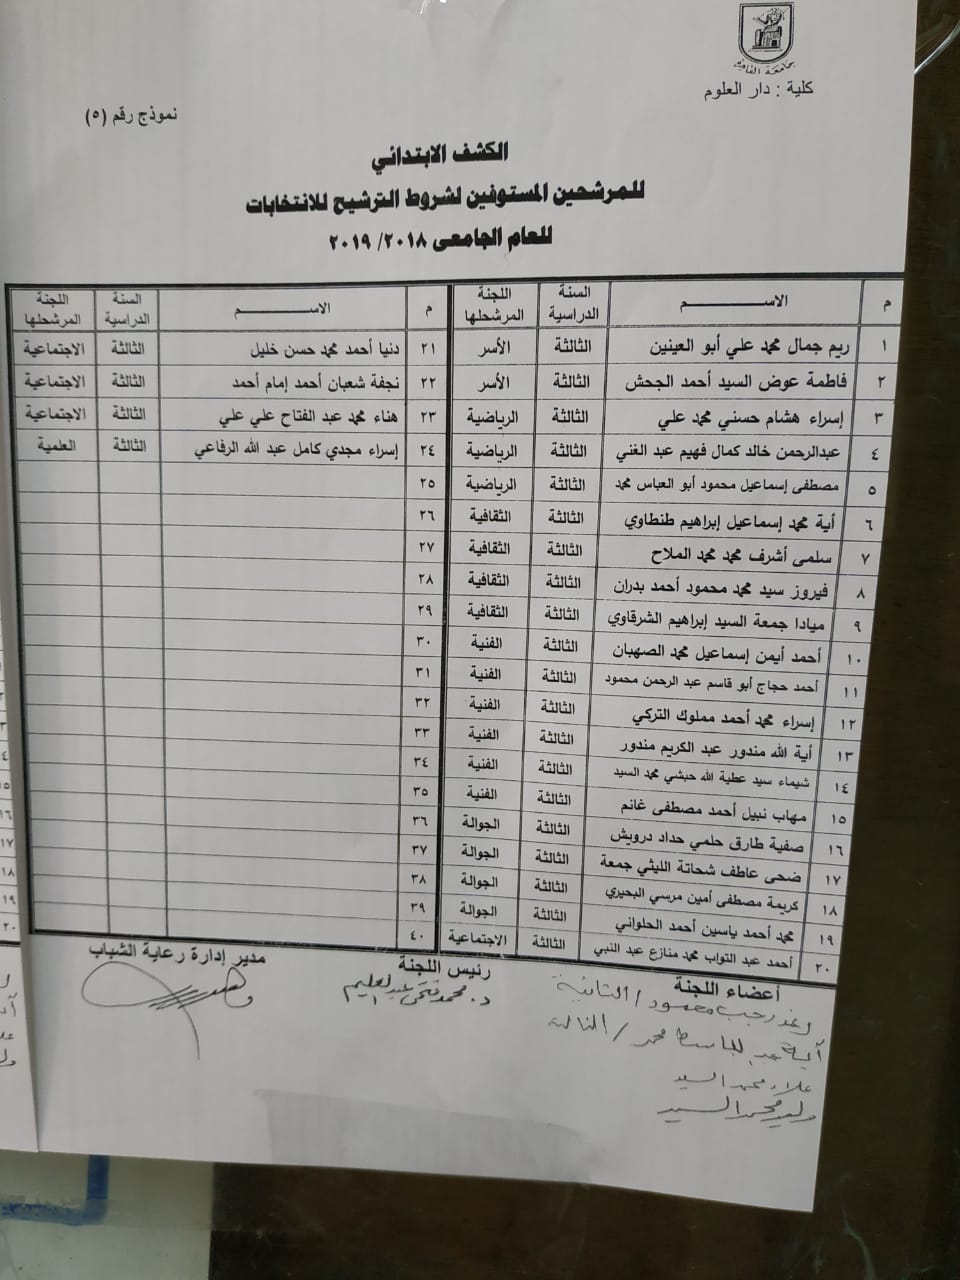 جامعة القاهرة
كلية : دار العلوم
نموذج رقم (٥)
الكشف الابتدائي
للمرشحين المستوفين لشروط الترشيح للانتخابات
للعام الجامعى ٢٠١٨/ ٢٠١٩
م الاســـــــــم السنة الدراسية اللجنة المرشحلها م الاســـــــــم السنة الدراسية اللجنة المرشحلها
١ ريم جمال محمد علي أبو العينين الثالثة الأسر ٢١ دنيا أحمد محمد حسن خليل الثالثة الاجتماعية
٢ فاطمة عوض السيد أحمد الجحش الثالثة الأسر ٢٢ نجفة شعبان أحمد إمام أحمد الثالثة الاجتماعية
٣ إسراء هشام حسني محمد علي الثالثة الرياضية ٢٣ هناء محمد عبد الفتاح علي علي الثالثة الاجتماعية
٤ عبدالرحمن خالد كمال فهيم عبد الغني الثالثة الرياضية ٢٤ إسراء مجدي كامل عبد الله الرفاعي الثالثة العلمية
٥ مصطفى إسماعيل محمود أبو العباس محمد الثالثة الرياضية ٢٥
٦ أية محمد إسماعيل إبراهيم طنطاوي الثالثة الثقافية ٢٦
٧ سلمى أشرف محمد محمد الملاح الثالثة الثقافية ٢٧
٨ فيروز سيد محمد محمود أحمد بدران الثالثة الثقافية ٢٨
٩ ميادا جمعة السيد إبراهيم الشرقاوي الثالثة الثقافية ٢٩
١٠ أحمد أيمن إسماعيل محمد الصهبان الثالثة الفنية ٣٠
١١ أحمد حجاج أبو قاسم عبد الرحمن محمود الثالثة الفنية ٣١
١٢ إسراء محمد أحمد مملوك التركي الثالثة الفنية ٣٢
١٣ أية الله مندور عبد الكريم مندور الثالثة الفنية ٣٣
١٤ شيماء سيد عطية الله حبشي محمد السيد الثالثة الفنية ٣٤
١٥ مهاب نبيل أحمد مصطفى غانم الثالثة الفنية ٣٥
١٦ صفية طارق حلمي حداد درويش الثالثة الجوالة ٣٦
١٧ ضحى عاطف شحاتة الليثي جمعة الثالثة الجوالة ٣٧
١٨ كريمة مصطفى أمين مرسي البحيري الثالثة الجوالة ٣٨
١٩ محمد أحمد ياسين أحمد الحلواني الثالثة الجوالة ٣٩
٢٠ أحمد عبد التواب محمد منازع عبد النبي الثالثة الاجتماعية ٤٠
أعضاء اللجنة رئيس اللجنة مدير إدارة رعاية الشباب
رغد رجب محمود / الثانية د. محمد فتحى عبدالعليم
آية عبد الباسط محمد / الثالثة
علاء محمد السيد
وليد محمد السيد